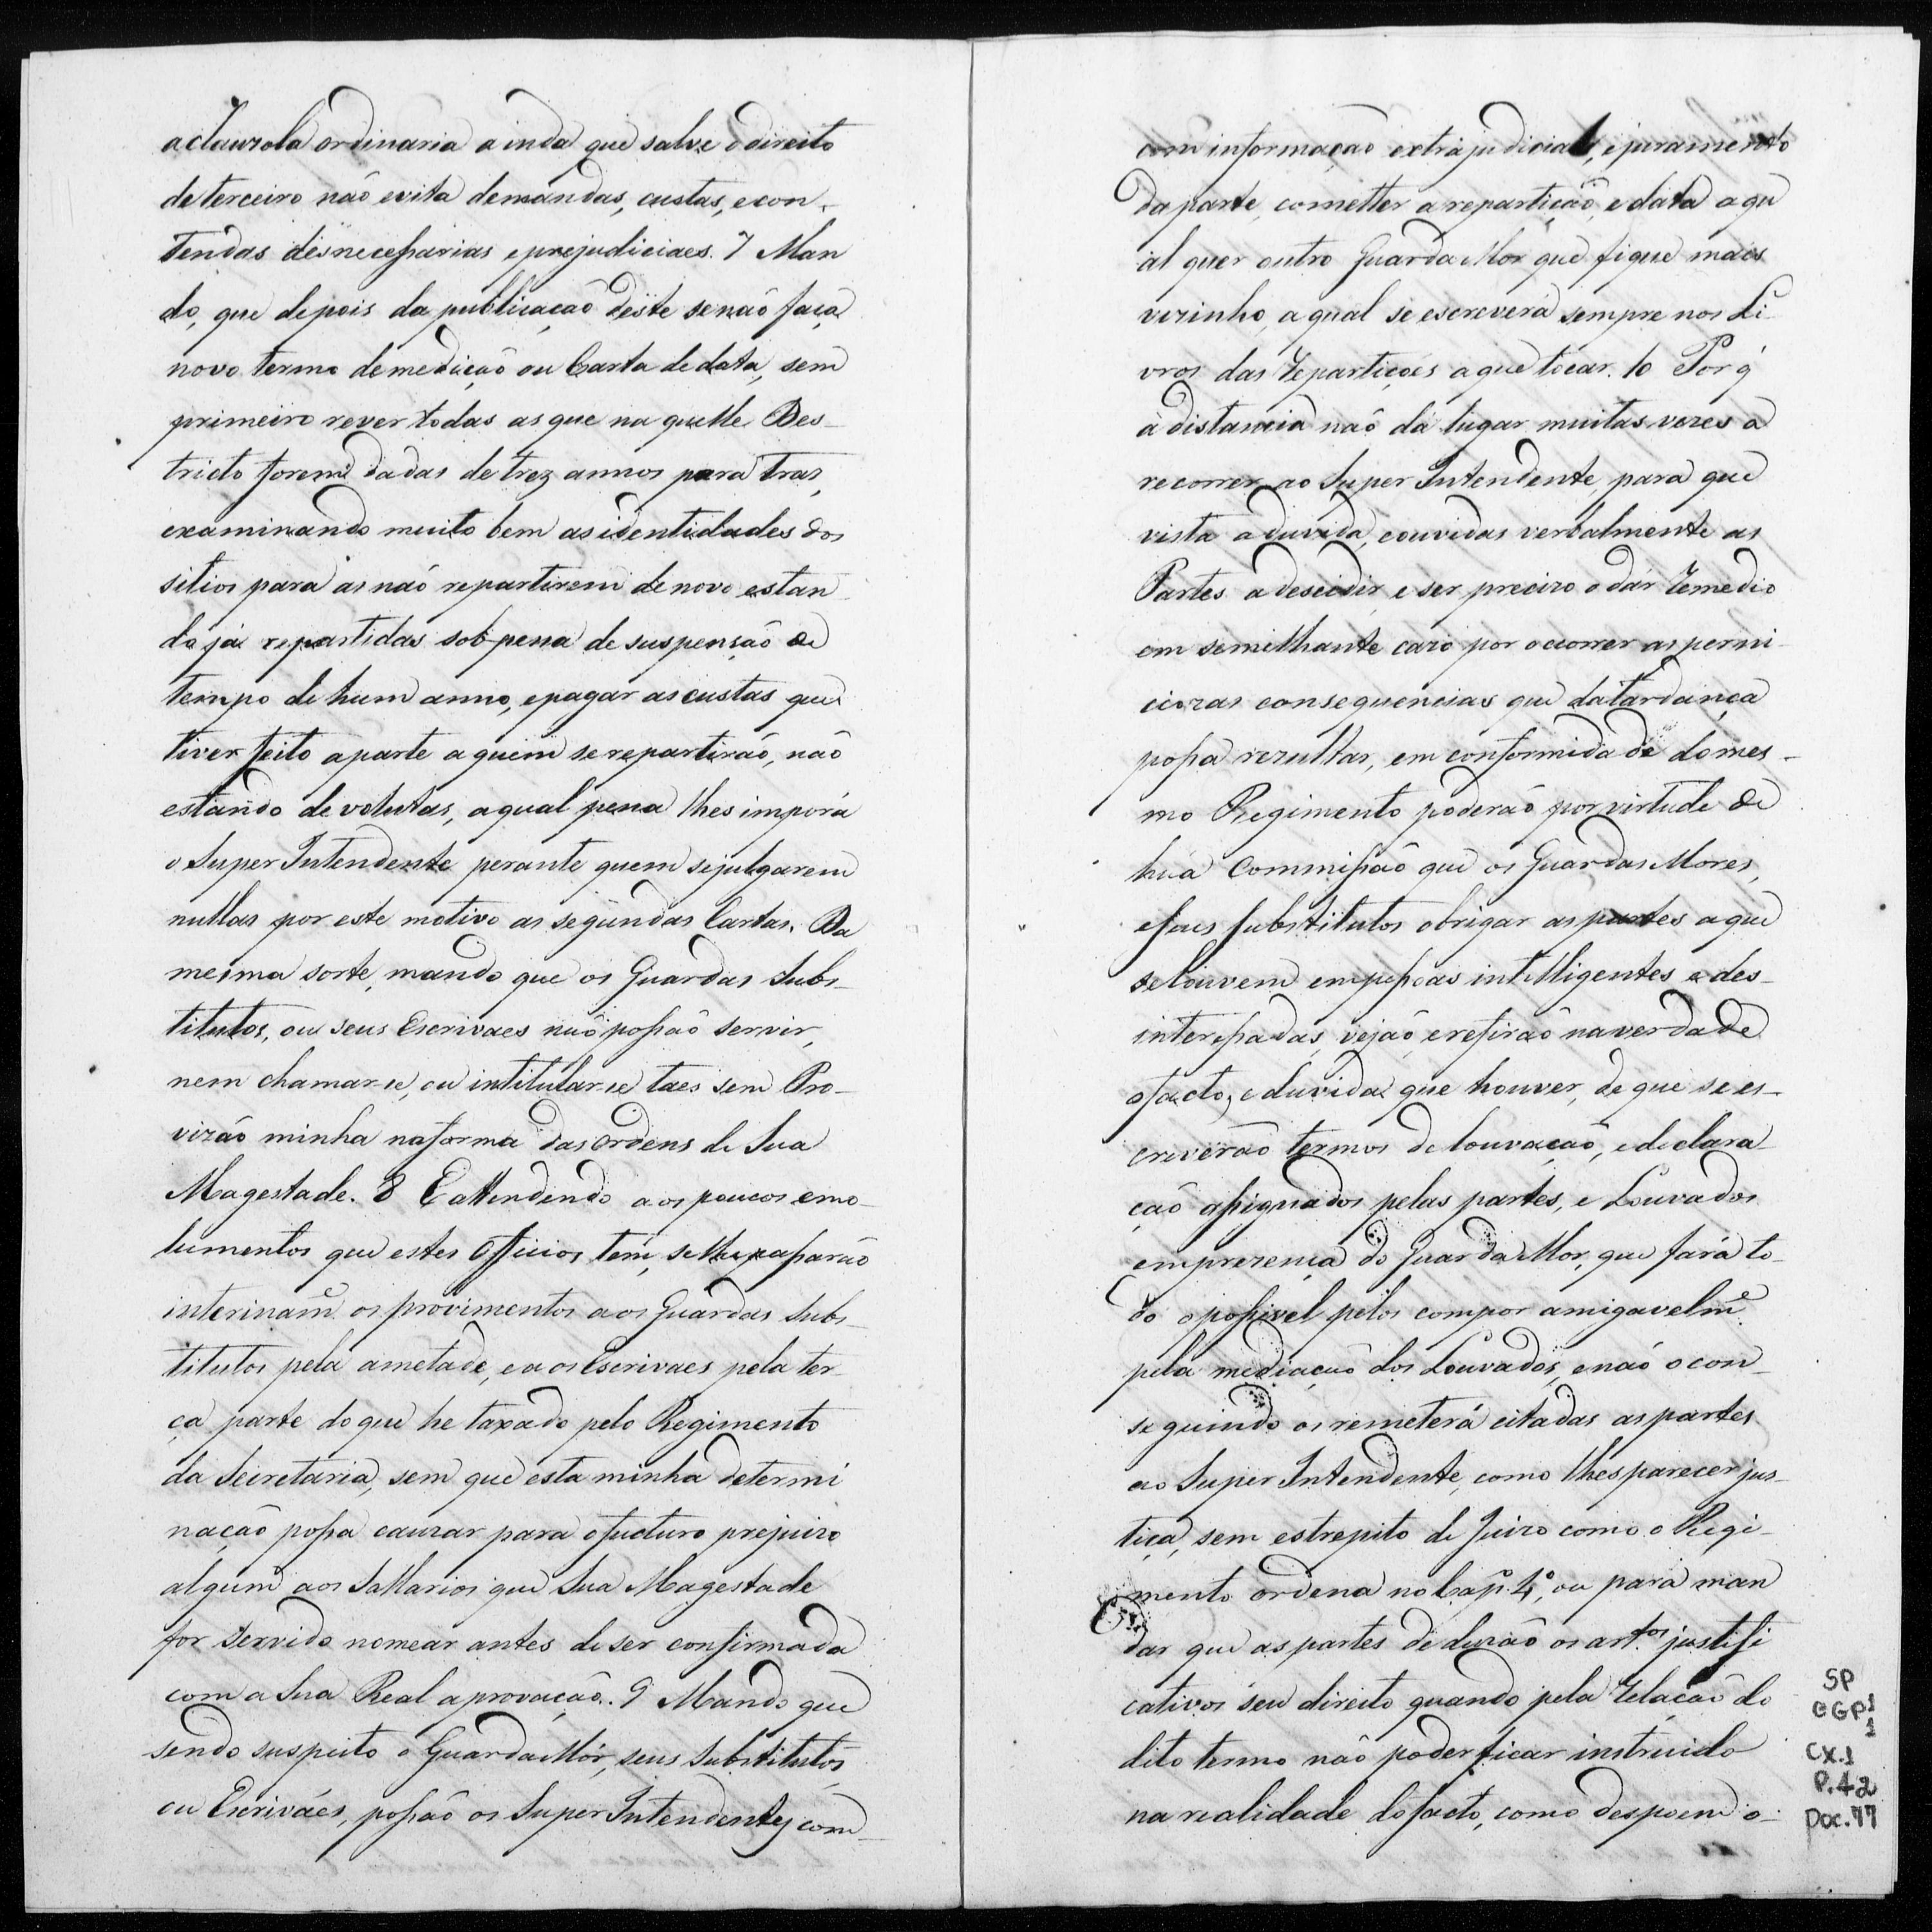 aclauzola ordinaria ainda que salve o direito
de terceiro não evita demandas, custas, e con-
tendas desnecessarias e prejudiciaes. 7 Man
do, que depois da publicação deste se não faça
novo termo de medição ou Carta de data, sem
primeiro rever todas as que na quelle Des-
tricto forem dadas de trez annos para tras,
examinando muito bem as identidades dos
sitios para as não repartirem de novo estan
do já repartidas sob pena de suspensão de
tempo de hum anno, e pagar as custas que
tiver feito a parte a quem se repartirão, não
estando devolutas, a qual pena lhes imporá
o Super Intendente perante quem se julgarem
nullas por este motivo as segundas Cartas. Da
mesma sorte, mando que os Guardas Subs-
titutos, ou seus Escrivaes não possão servir,
nem chamar-se, ou intitular-se taes sem Pro-
vizão minha na forma das ordens de Sua
Magestade. 8 E attendendo aos poucos emo-
lumentos que estes Officios tem, se lhe passarão
interinamᵉ os provimentos aos Guardas Subs-
titutos pela ametade, e aos Escrivaes pela ter-
ça parte do que he taxado pelo Regimento
da Secretaria, sem que esta minha determi
nação possa cauzar para o fucturo prejuizo
algum aos Sallarios que Sua Magestade
for Servido nomear antes de ser confirmada
com a Sua Real aprovação. 9 Mando que
sendo suspeito o Guarda Mór, seus Substitutos
ou Escriváes, possão os Super Intendentes com
com informação extrajudicial, e juramento
da parte, cometter a repartição, e data a qu
al quer outro Guarda Mor que fique mais
vizinho, a qual se escreverá sempre nos Li
vros das Repartiçoes a que tocar. 10 Por q̃
a distancia não dá lugar muitas vezes a
recorrer ao Super Intendente, para que
vista a duvida, e ouvidas verbalmente as
Partes a descidir, e ser precizo o dár Remedio
em semilhante cazo por ocorrer as perni
ciozas consequencias que da tardança
possa rezultar, em conformidade do mes-
mo Regimento poderão por virtude de
hua Commissão que os Guardas Mores,
e seus substitutos obrigar as partes a que
se louvem em pessoas intelligentes e des-
interessadas, vejão, e refirão na verdade
o facto, e duvida que houver, de que se es-
creverão termos de louvação, e declara-
ção assignados pelas partes, e Louvados
em prezença do Guarda Mor, que fará to-
do o possivel pelos compor amigavelmᵉ
pela mediação dos Louvados, e não o con-
seguindo os remeterá citadas as partes
ao Super Intendente, como lhes parecer jus-
tiça, sem estrepito de Juizo como o Regi-
mento ordena no Cap. 4º, ou para man
dar que as partes deduzão os artᵒˢ justifi
cativos seu direito quando pela Relação do
dito termo não poder ficar instruido
na realidade do facto, como despoem o
SP
CGP1
1
CX.1
P.42
Doc.77